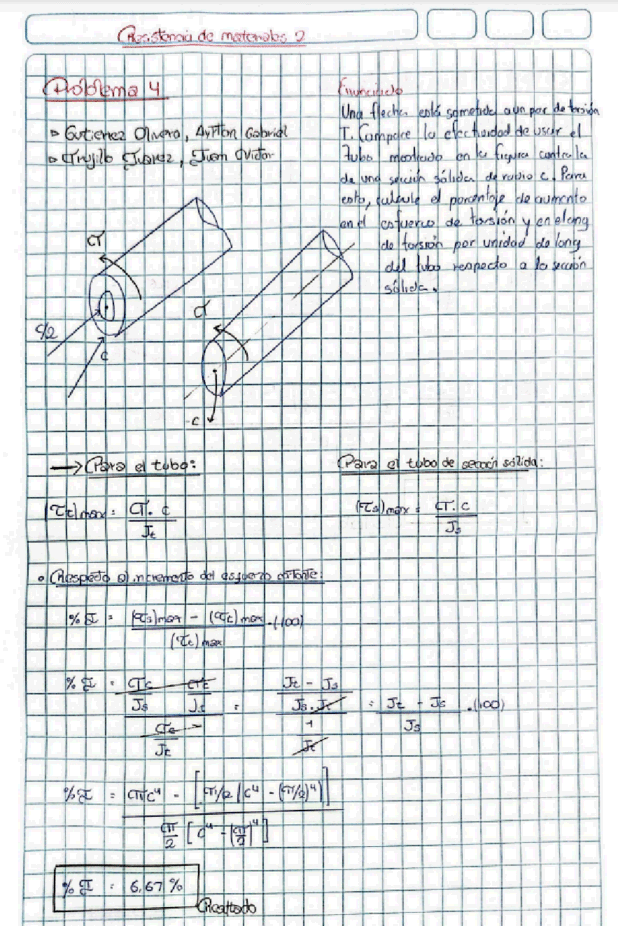 Resistencia de materiales 2
Problema 4
▹ Gutierrez Olvera, Ayrton Gabriel
▹ Trujillo Juarez, Juan Victor
Enunciado
Una flecha está sometida a un par de torsión
T. Compare la efectividad de usar el
tubo mostrado en la figura contra la
de una sección sólida de radio c. Para
esto, calcule el porcentaje de aumento
en el esfuerzo de torsión y en el áng
de torsión por unidad de long
del tubo respecto a la sección
sólida.
T
c/2
c
T
c
→ Para el tubo:
(τt)max = T. c / Jt
Para el tubo de sección sólida:
(τs)max = T. c / Js
• Respecto al incremento del esfuerzo cortante:
% τ = (τs)max - (τt)max / (τt)max .(100)
% τ = Tc/Js Tc/Jt / Tc/Jt = Jt - Js / Js.Jt / 1/Jt = Jt - Js / Js .(100)
% τ = πc⁴ - [π/2 (c⁴ - (π/2)⁴)] / π/2 [c⁴ - (π/2)⁴]
% τ = 6,67 %
Resultado